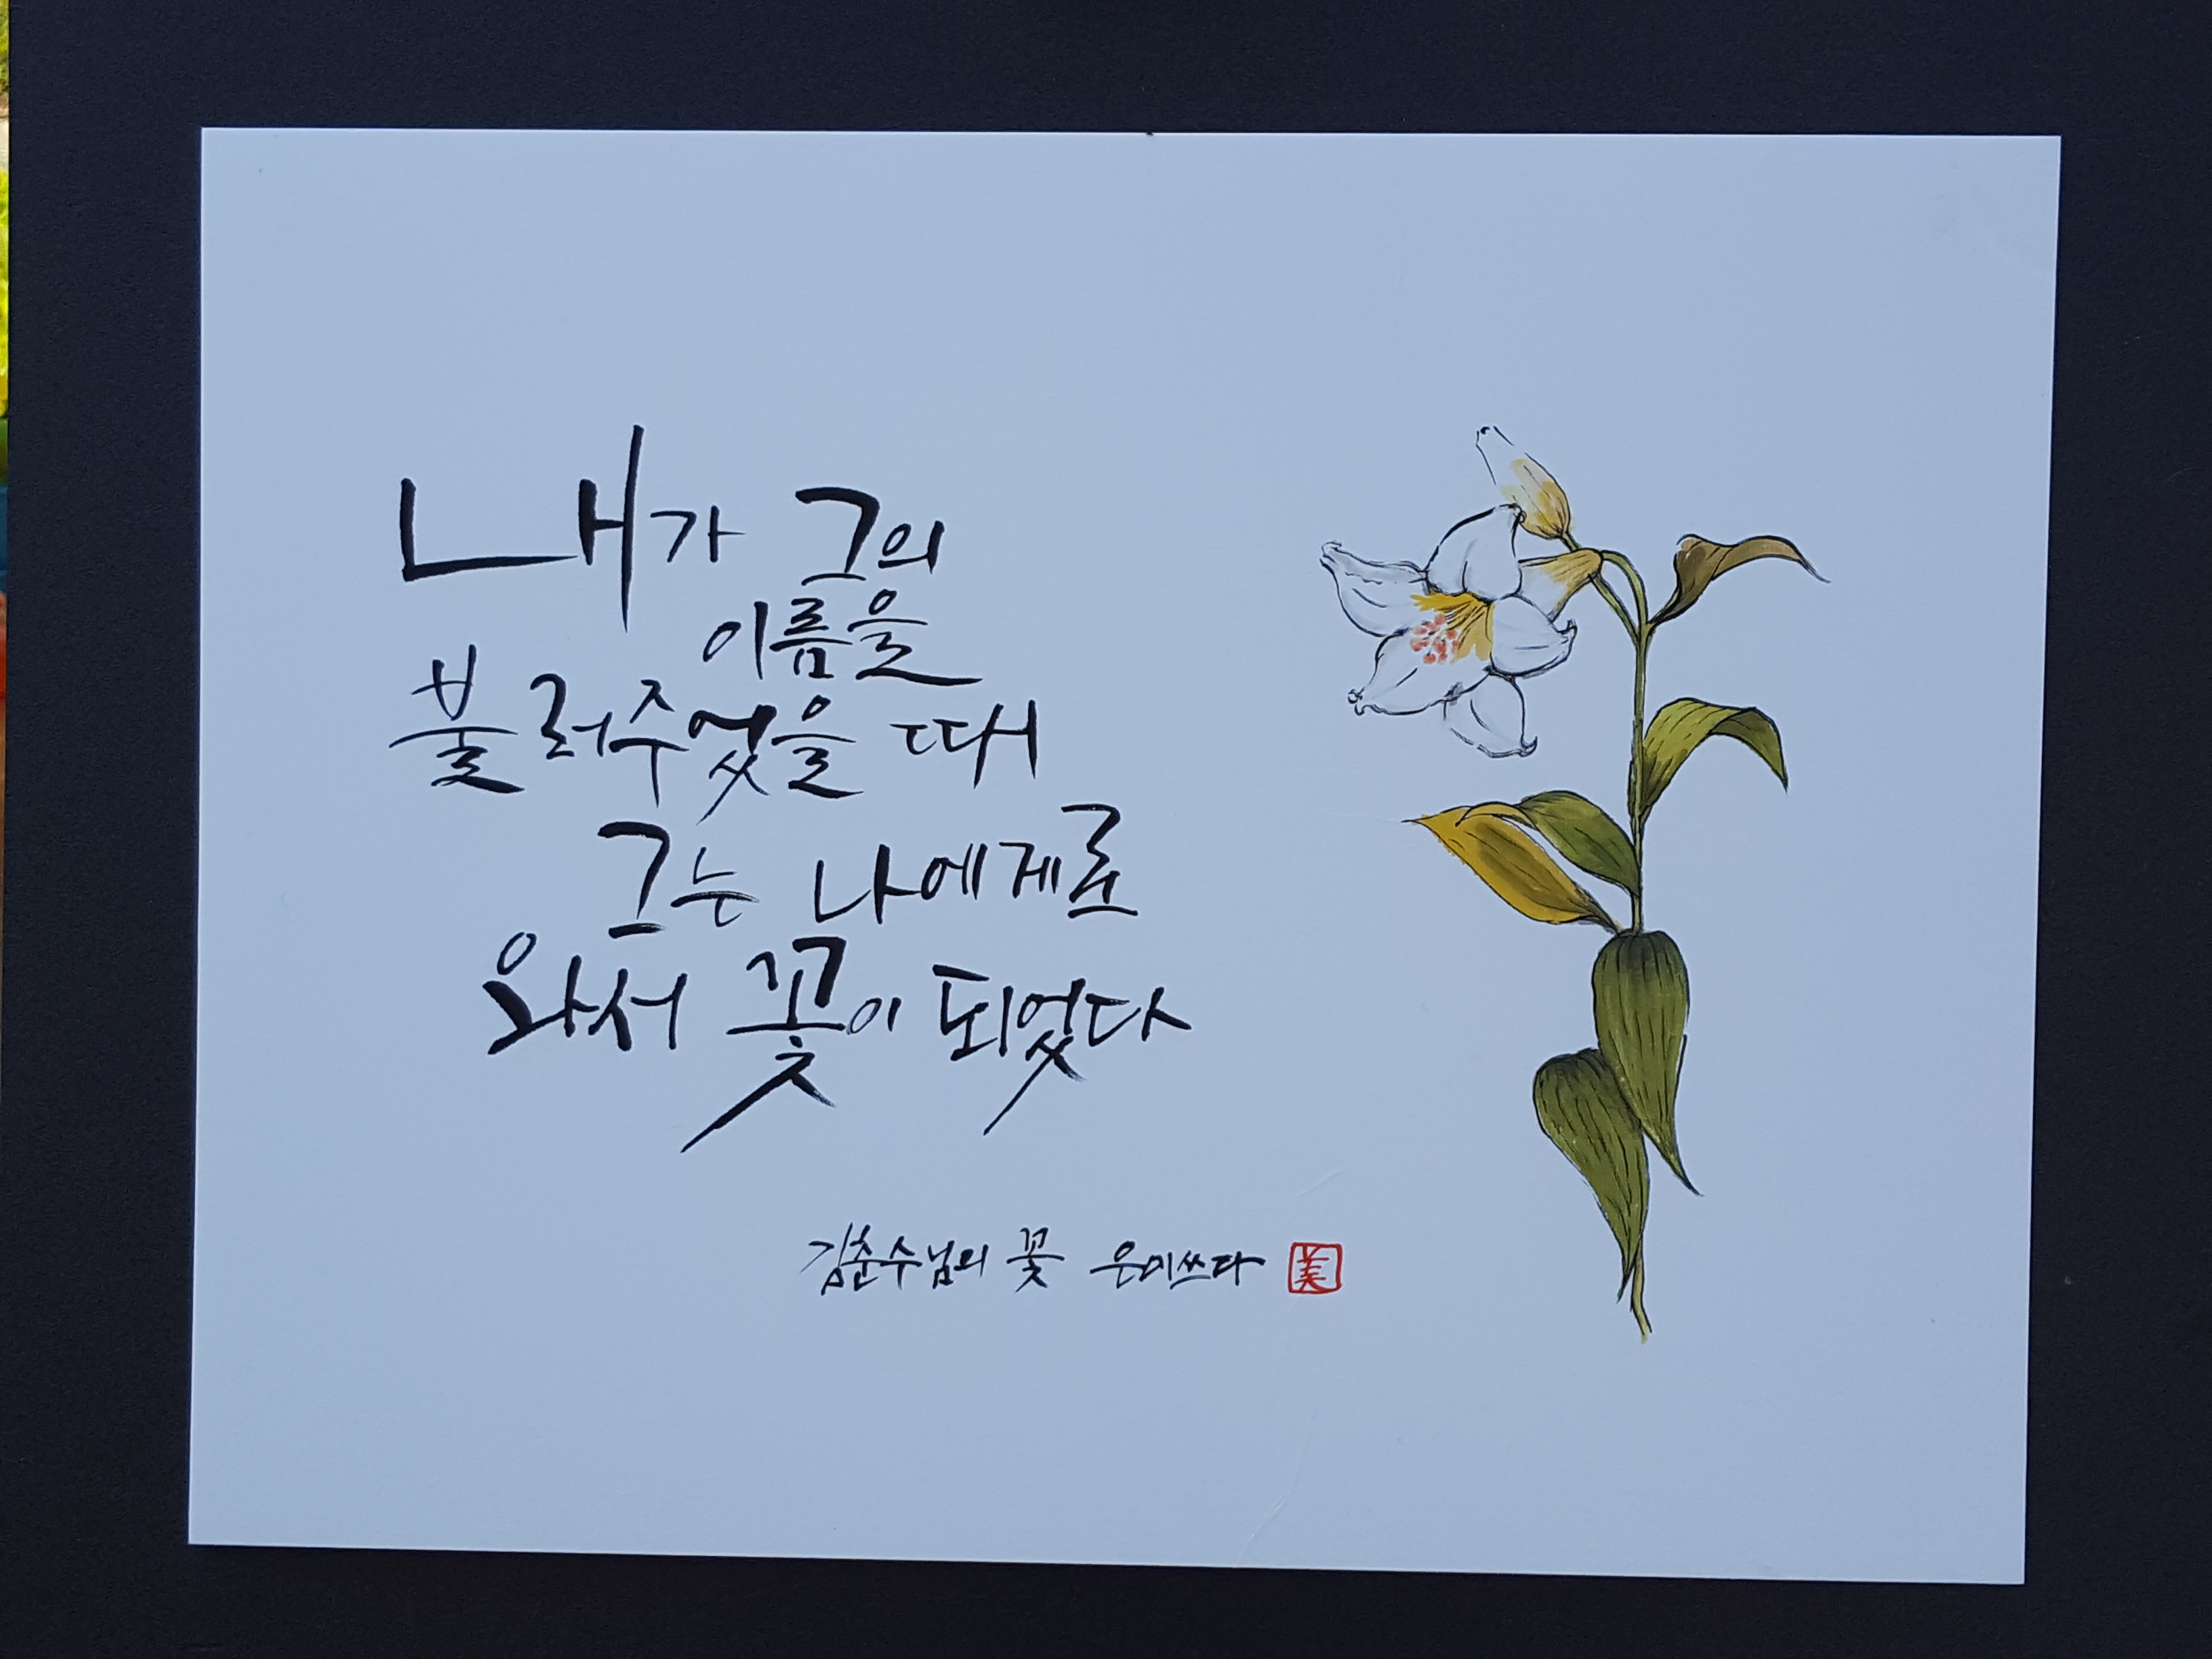 내가 그의
이름을
불러주었을 때
그는 나에게로
와서 꽃이 되었다
김춘수님의 꽃 은미쓰다 美